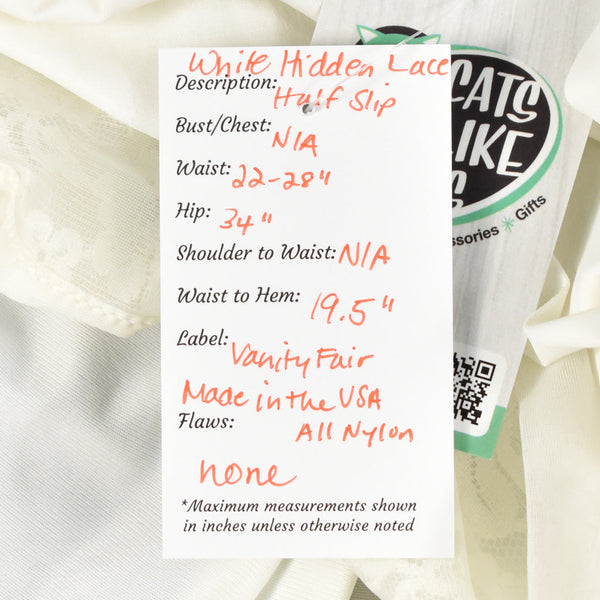 White Hidden Lace
Description: Half Slip
Bust/Chest: N/A
Waist: 22-28"
Hip: 34"
Shoulder to Waist: N/A
Waist to Hem: 19.5"
Label: Vanity Fair
Made in the USA
Flaws: All Nylon
none
*Maximum measurements shown
in inches unless otherwise noted
CATS
LIKE
S
ssories * Gifts